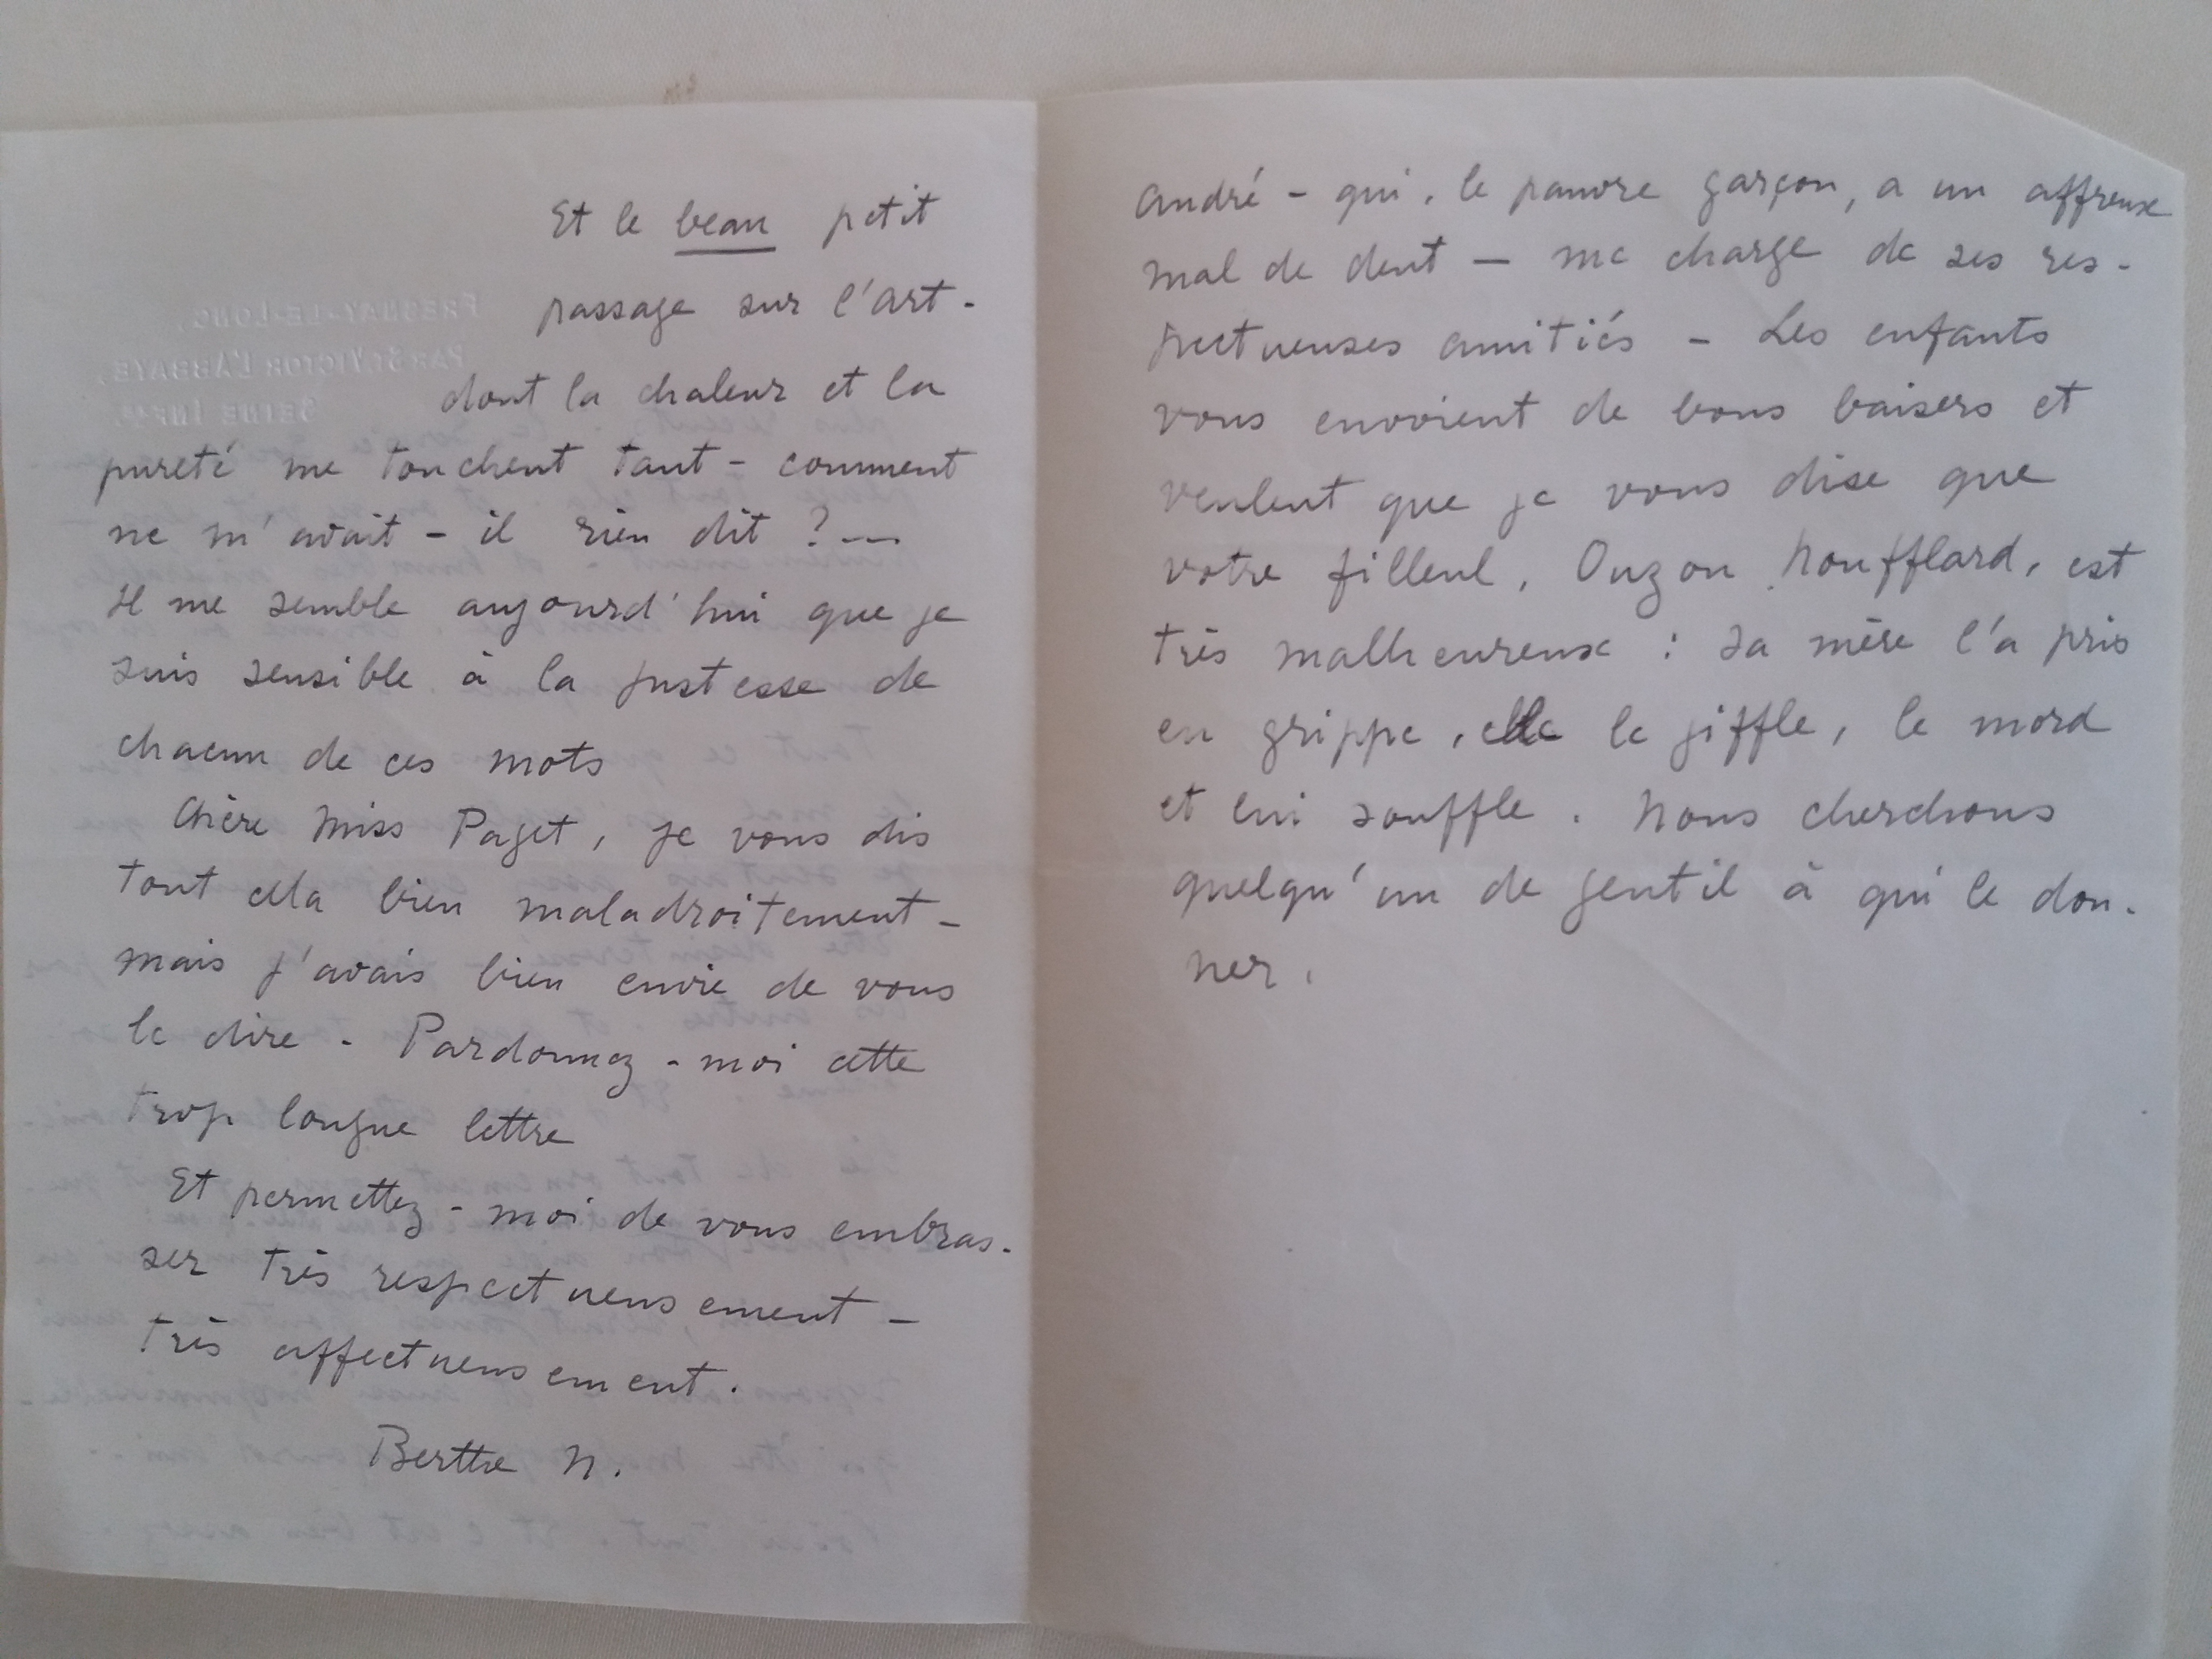 Et le beau petit
passage sur l'art -
dont la chaleur et la
pureté me touchent tant - comment
ne m'avait-il rien dit ? ---
Il me semble aujourd'hui que je
suis sensible à la justesse de
chacun de ces mots
Chère Miss Paget, je vous dis
tout cela bien maladroitement -
mais j'avais bien envie de vous
le dire - Pardonnez-moi cette
trop longue lettre
Et permettez-moi de vous embras-
ser très respectueusement -
très affectueusement.
Berthe N.
FRESNAY-LE-LONG,
PAR ST VICTOR L'ABBAYE,
SEINE INFRE.
André - qui, le pauvre garçon, a un affreux
mal de dent - me charge de ses res-
pectueuses amitiés - Les enfants
vous envoient de bons baisers et
veulent que je vous dise que
votre filleul, Ouzon Noufflard, est
très malheureux : sa mère l'a pris
en grippe, elle le giffle, le mord
et lui souffle. Nous cherchons
quelqu'un de gentil à qui le don-
ner.